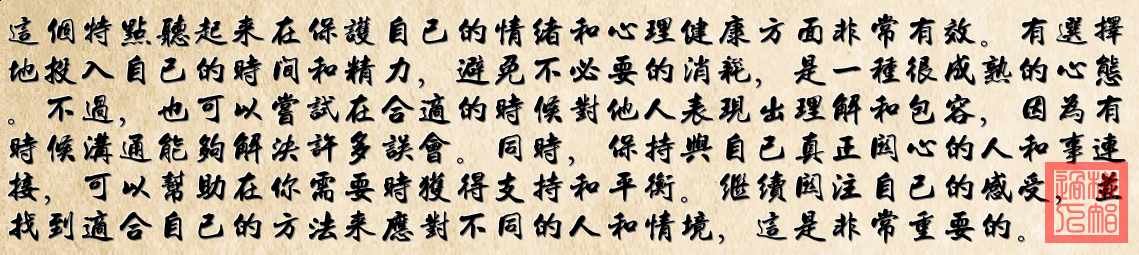 這個特點聽起來在保護自己的情緒和心理健康方面非常有效。有選擇
地投入自己的時間和精力，避免不必要的消耗，是一種很成熟的心態
。不過，也可以嘗試在合適的時候對他人表現出理解和包容，因為有
時候溝通能夠解決許多誤會。同時，保持與自己真正關心的人和事連
接，可以幫助在你需要時獲得支持和平衡。繼續關注自己的感受，並
找到適合自己的方法來應對不同的人和情境，這是非常重要的。